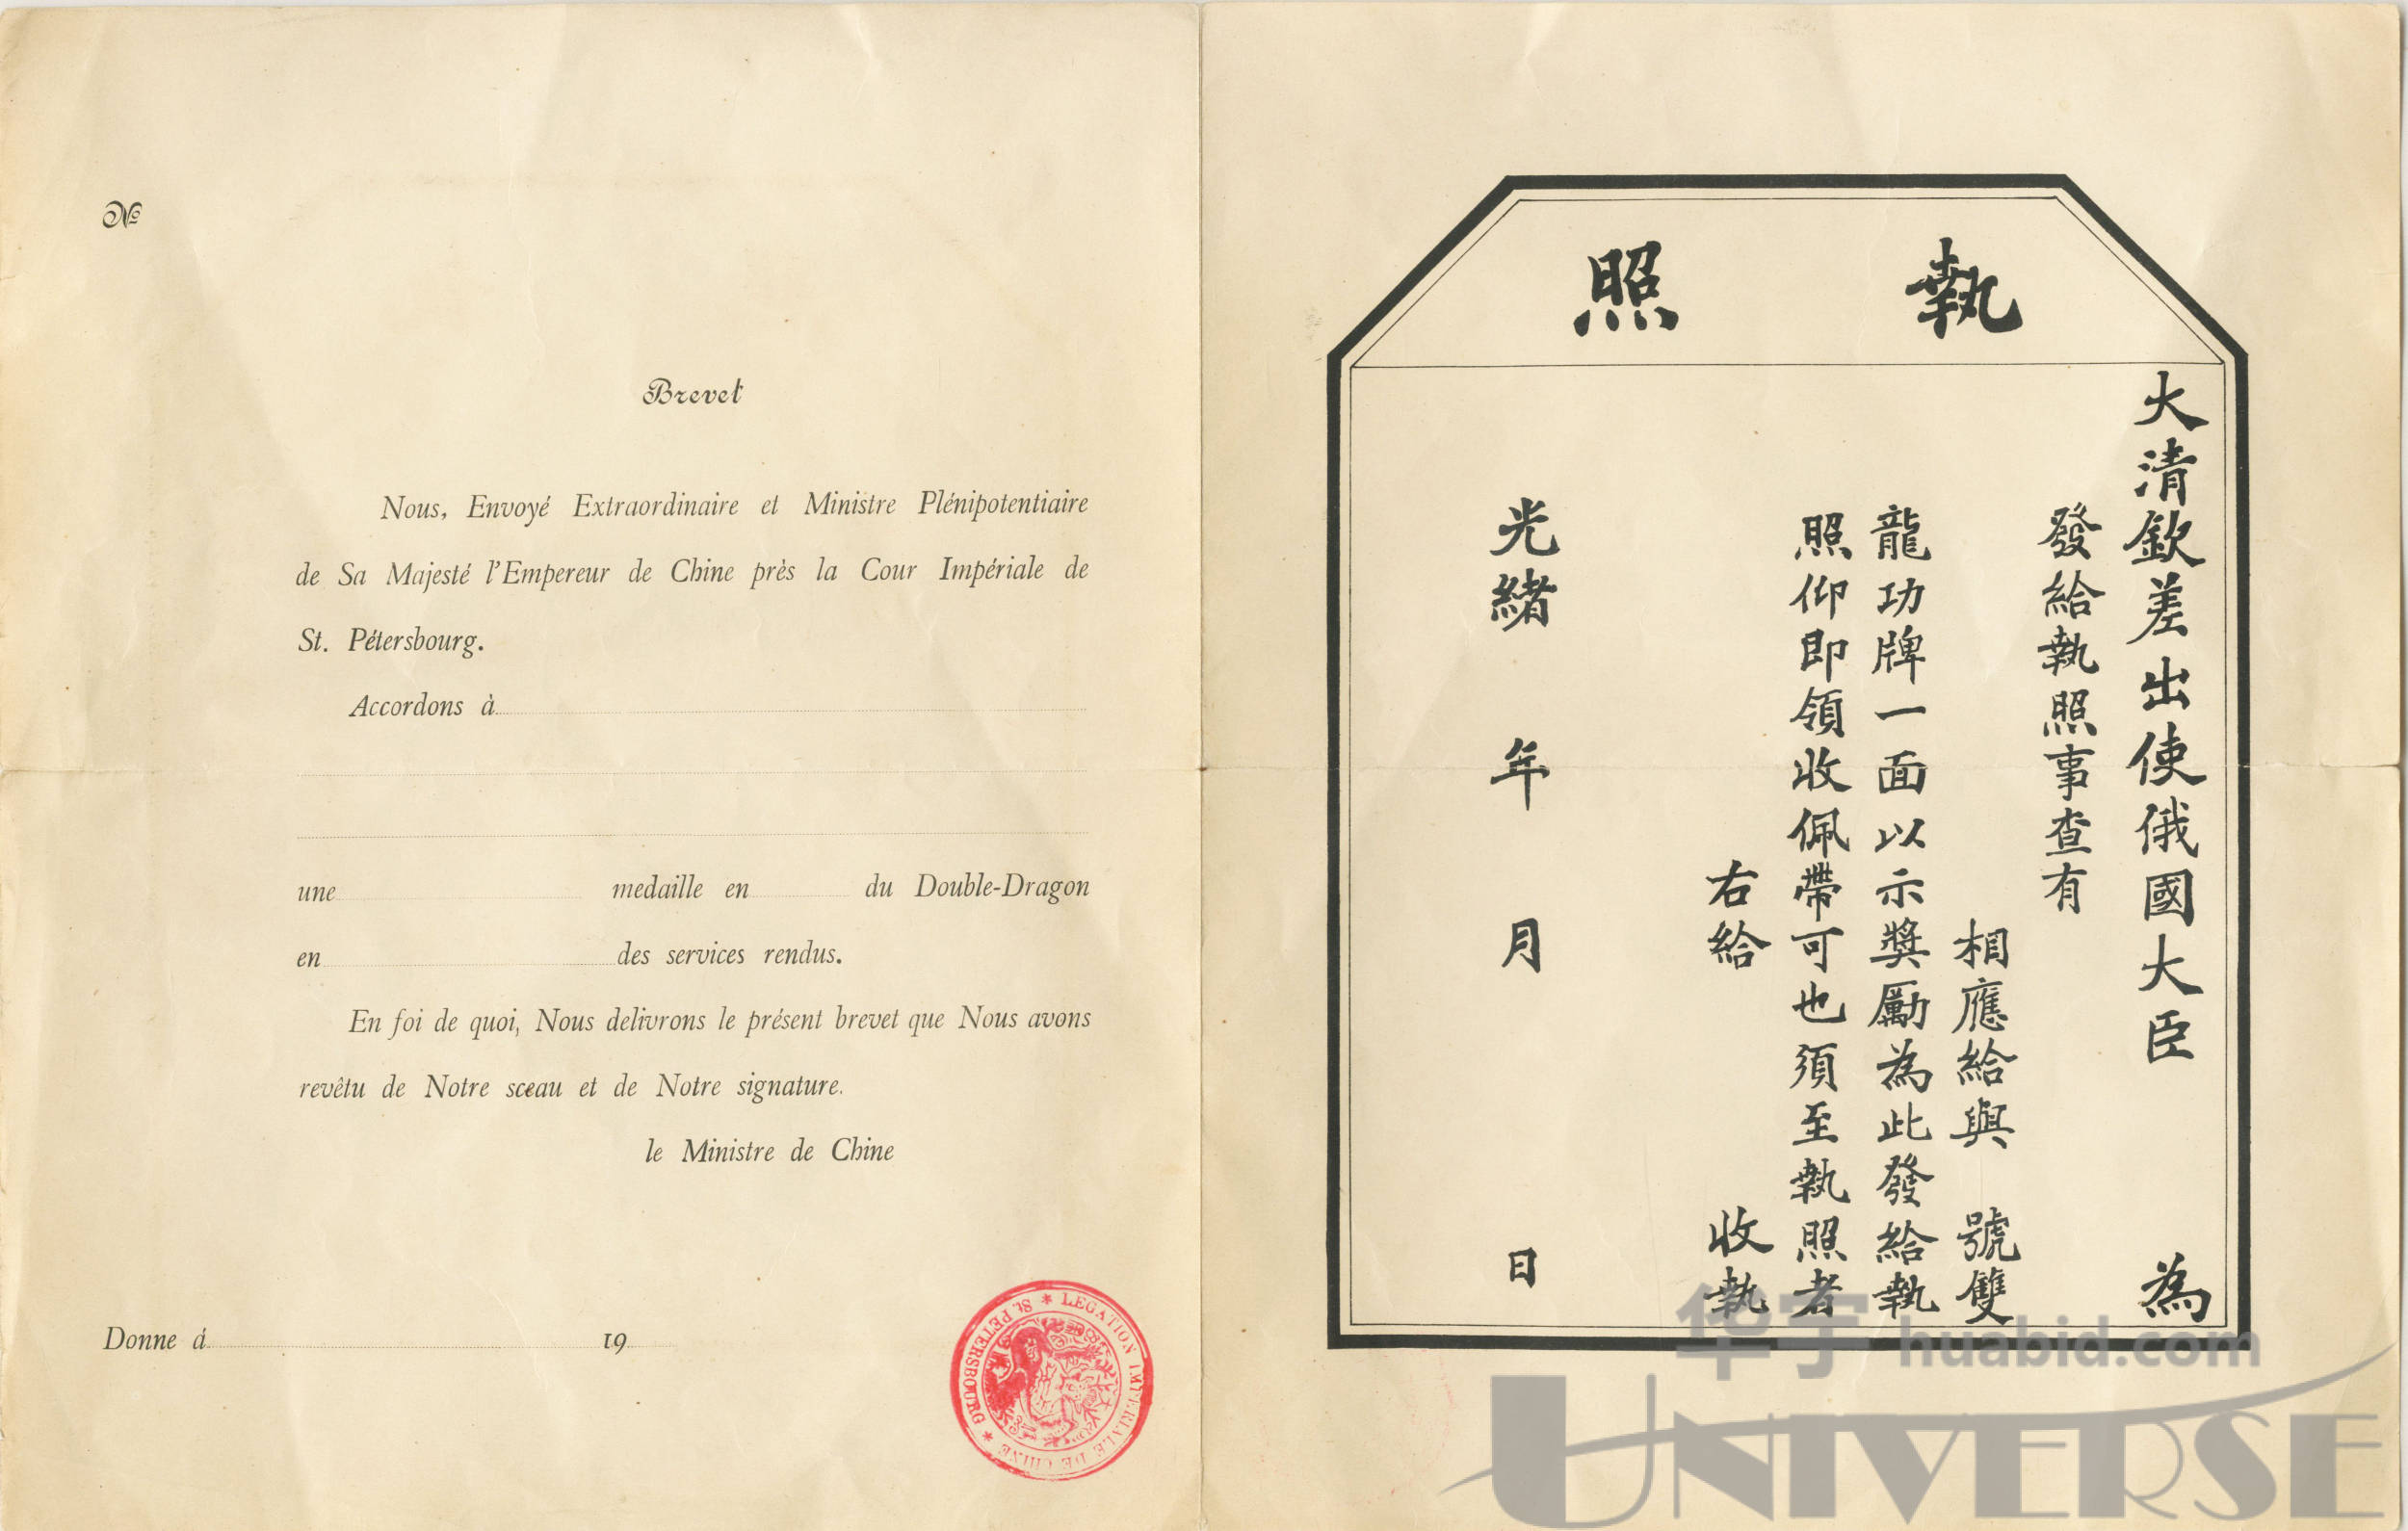 №
Brevet
Nous, Envoyé Extraordinaire et Ministre Plénipotentiaire
de Sa Majesté l'Empereur de Chine près la Cour Impériale de
St. Pétersbourg.
Accordons à
une medaille en du Double-Dragon
en des services rendus.
En foi de quoi, Nous delivrons le présent brevet que Nous avons
revêtu de Notre sceau et de Notre signature.
le Ministre de Chine
Donne á 19
LEGATION IMPERIALE DE CHINE * St PETERSBOURG *
執照
大清欽差出使俄國大臣 為
發給執照事查有
相應給與 號雙
龍功牌一面以示獎勵為此發給執
照仰即領收佩帶可也須至執照者
右給 收執
光緒 年 月 日
华宇 huabid.com
UNIVERSE